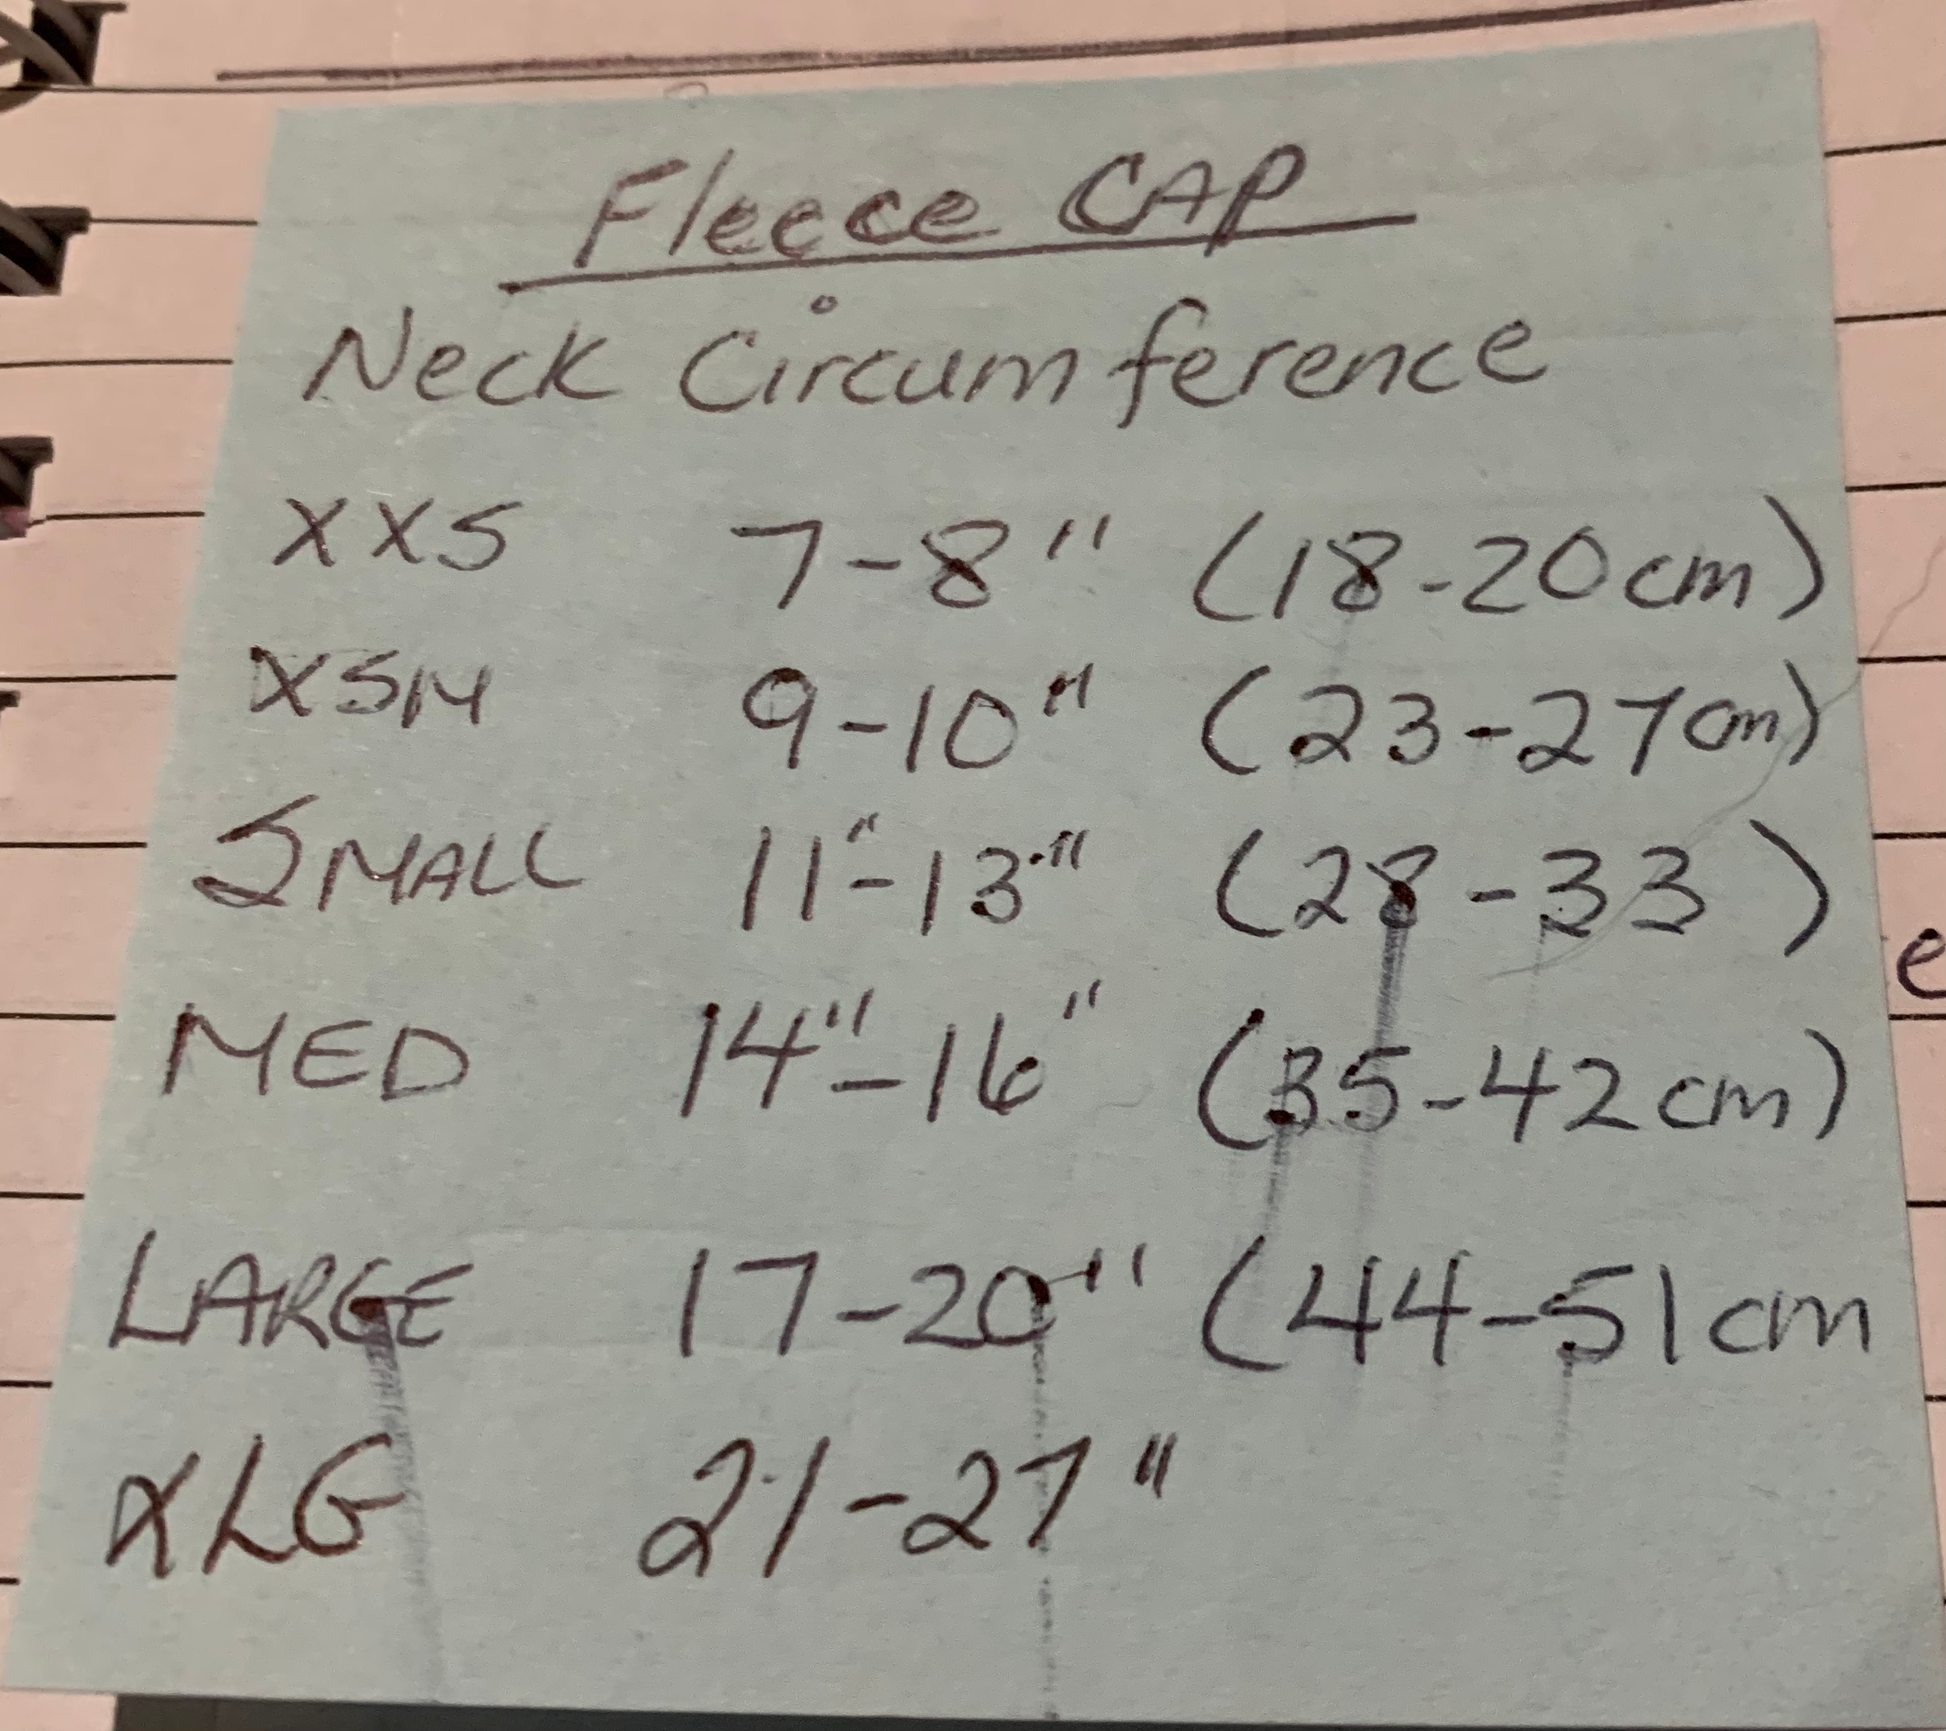 Fleece CAP
Neck Circumference
XXS 7-8" (18-20cm)
XSM 9-10" (23-27cm)
SMALL 11"-13" (28-33)
MED 14"-16" (35-42cm)
LARGE 17-20" (44-51cm
XLG 21-27"
e